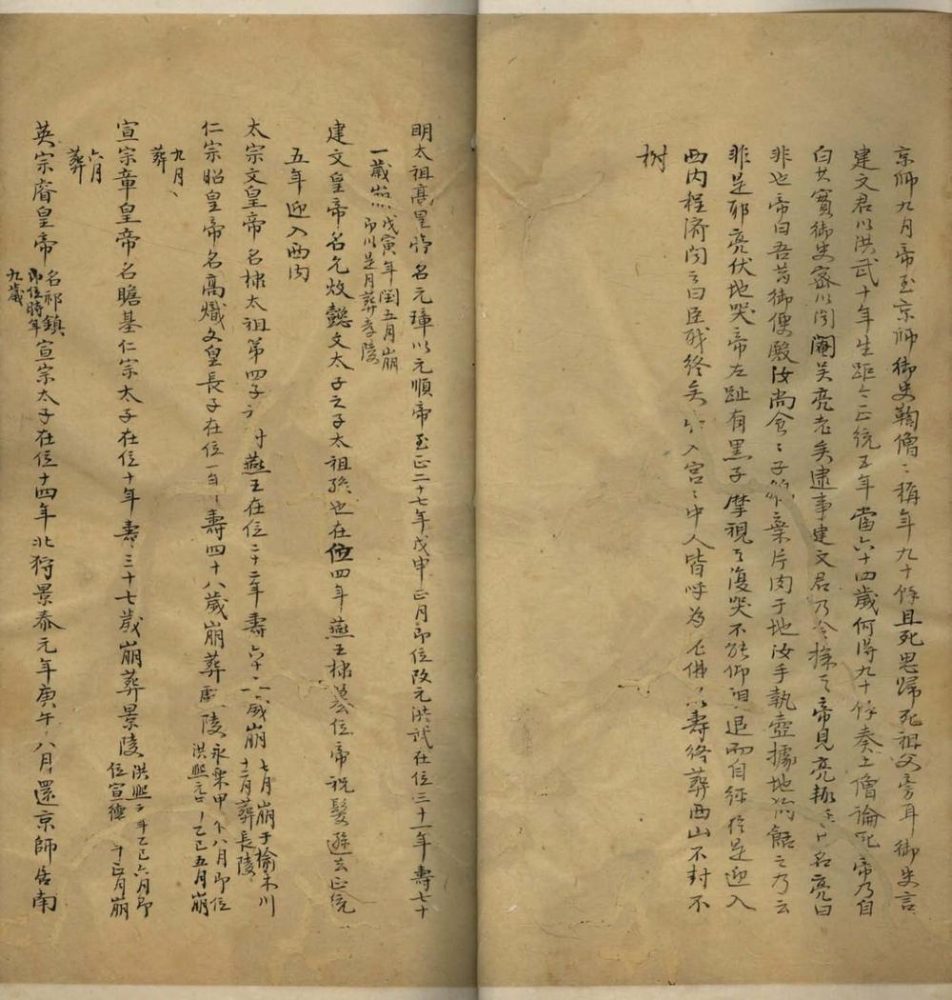 京師九月帝至京師御史鞫僧〻稱年九十餘且死思歸死祖父旁耳御史言
建文君以洪武十年生距今正統五年當六十四歲何得九十餘奏上僧論死帝乃自
白其實御史密以聞閹吳亮老矣逮事建文君乃令探之帝見亮輒曰名亮曰
非也帝曰吾昔御便殿汝尚食〻子鵝棄片肉于地汝手執壺據地狗餂之乃云
非是耶亮伏地哭帝左趾有黑子摩視之復哭不能仰退而自經於是迎入
西內程濟聞之曰臣職終矣入宮〻中人皆呼為老佛以壽終葬西山不封不
树
明太祖高皇帝名元璋以元順帝至正二十七年戊申正月即位改元洪武在位三十一年壽七十
一歲崩戊寅年閏五月崩即以是月葬孝陵
建文皇帝名允炆懿文太子之子太祖孫也在位四年燕王棣篡位帝祝髮遜去正統
五年迎入西内
太宗文皇帝名棣太祖第四子封燕王在位二十二年壽六十歲崩七月崩于榆木川十二月葬長陵
仁宗昭皇帝名高熾文皇長子在位一年壽四十八歲崩葬獻陵永樂甲八月即位洪熙元乙巳五月崩
九月葬
宣宗章皇帝名瞻基仁宗太子在位十年壽三十七歲崩葬景陵洪熙元年乙巳六月即位宣德年正月崩
六月葬
英宗睿皇帝名祁鎮即位時年九歲宣宗太子在位十四年北狩景泰元年庚午八月還京師居南